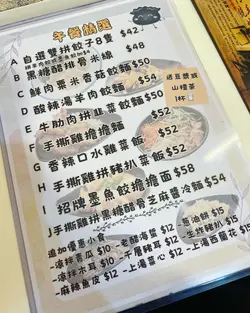 午餐精選
A 自選雙拼餃子8隻 $42
B 黑糖醋排骨米線 $48
C 鮮肉粟米香菇餃麵 $50
D 酸辣湯羊肉餃麵 $54
E 牛肋肉拼韭菜餃麵 $50
F 手撕雞擔擔麵 $52
G 香辣口水雞菜飯 $52
H 手撕雞拼豬扒菜飯 $52
I 招牌墨魚餃擔擔麵 $58
J 手撕雞拼黑糖醋骨芝麻醬冷麵 $54
送豆漿或
山楂茶
1杯
追加優惠小食
-涼拌青瓜 $10
-涼拌木耳 $10
-麻辣魚皮 $12
-老醋海蜇 $12
-千層豬耳 $12
-上湯菜心 $12
-蔥油餅 $15
-上湯西蘭花 $15